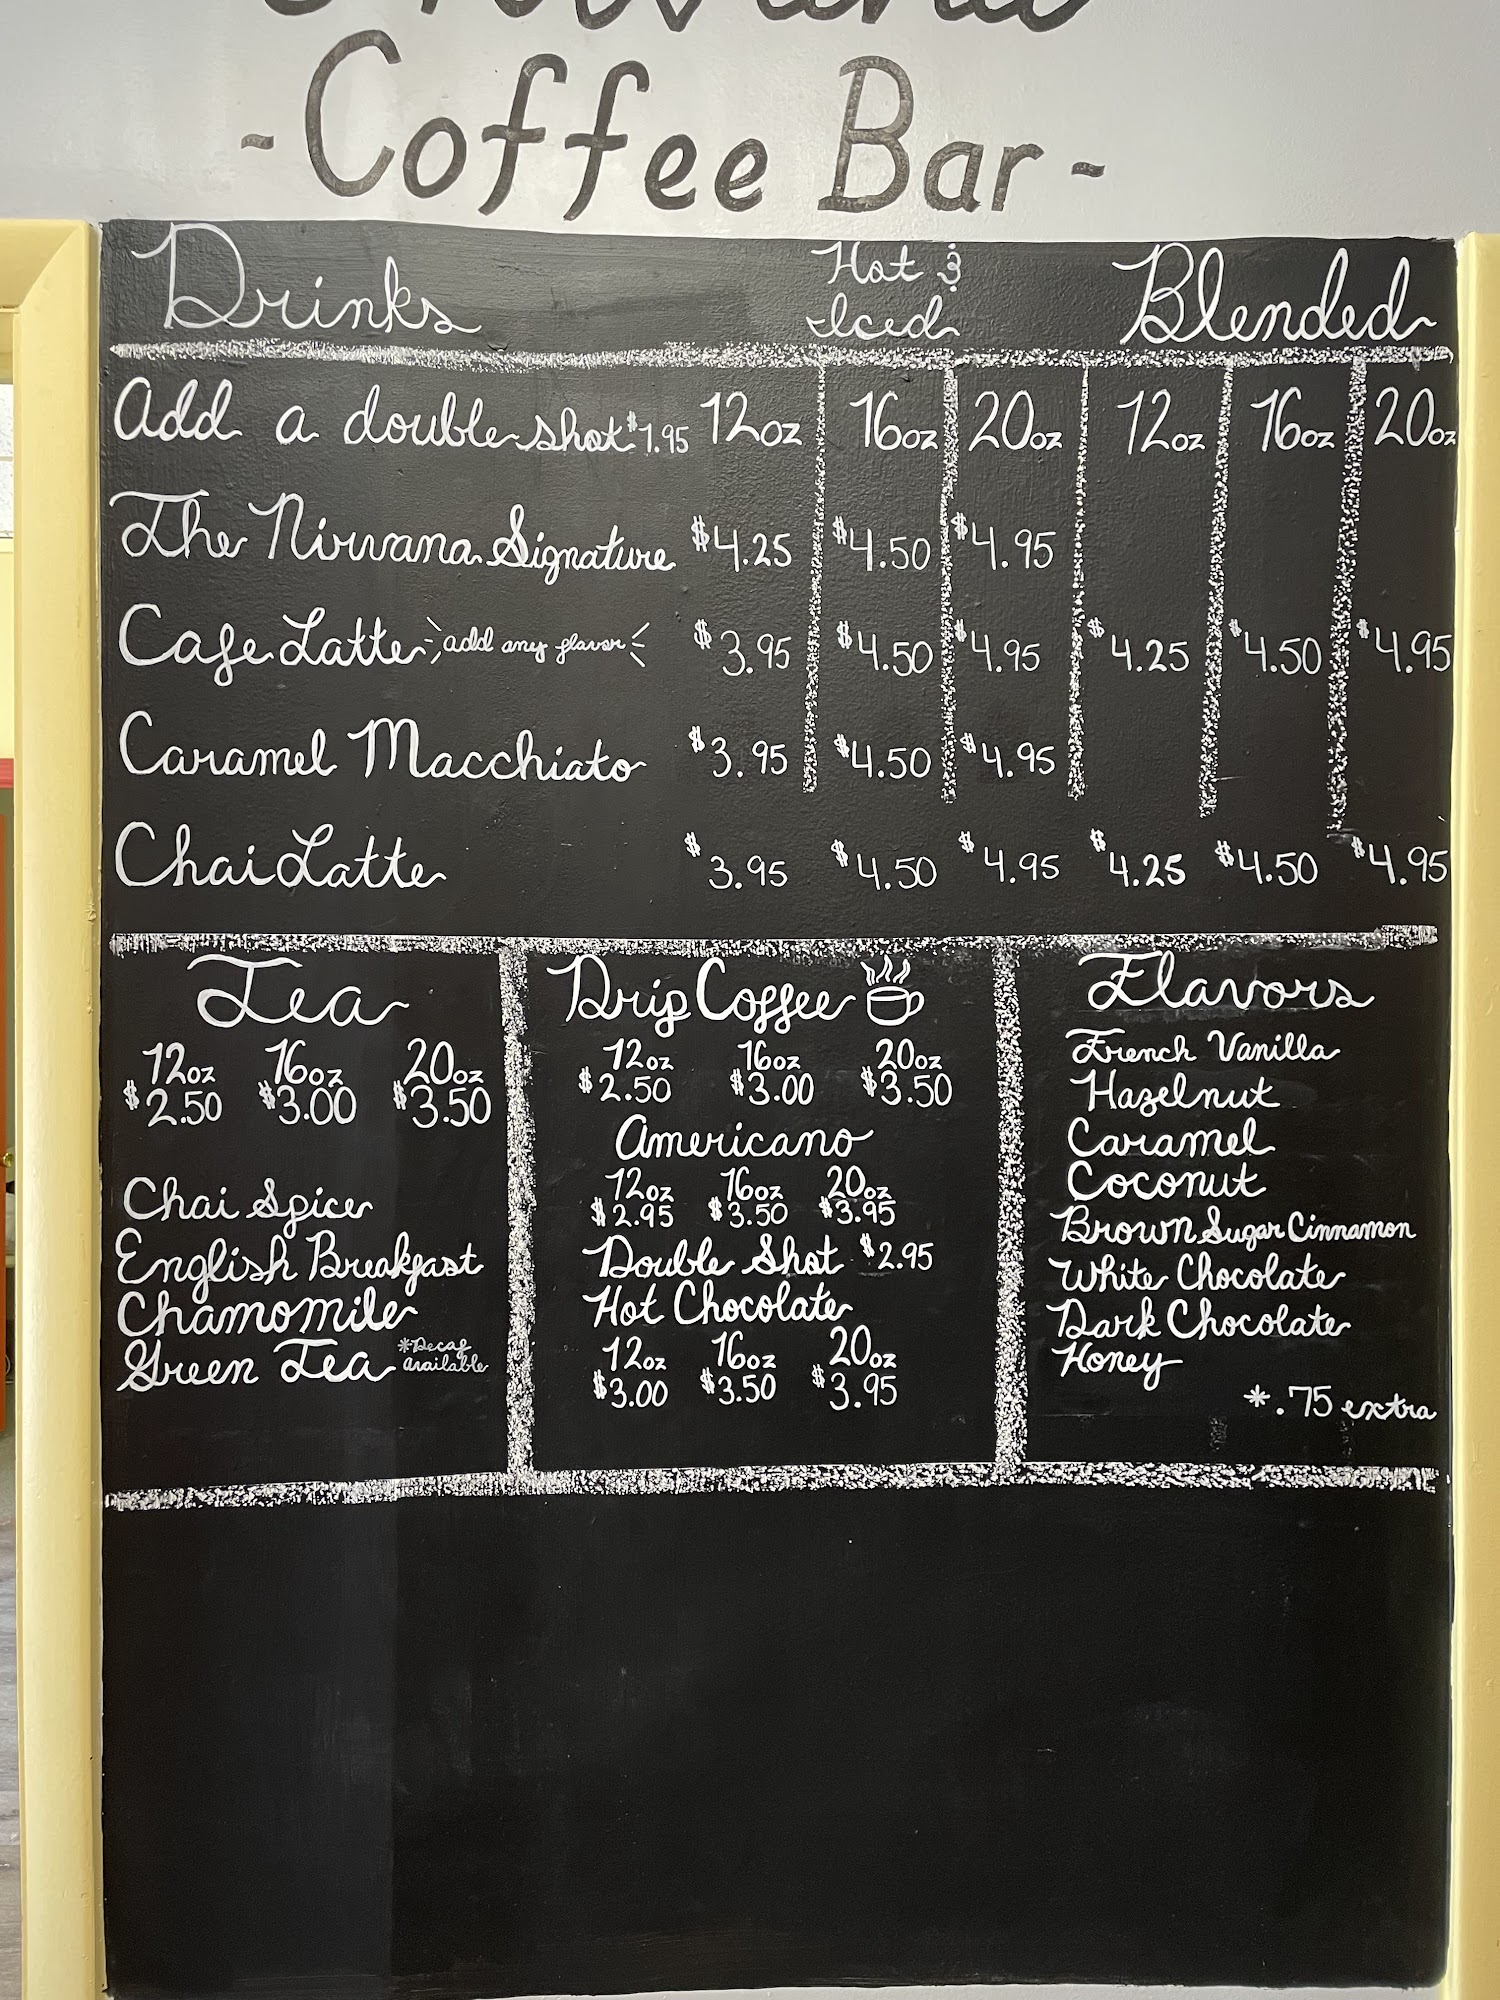 Nirvana
- Coffee Bar -
Drinks Hot & Iced Blended
Add a double shot $1.95 12oz 16oz 20oz 12oz 16oz 20oz
The Nirvana Signature $4.25 $4.50 $4.95
Cafe Latte add any flavor $3.95 $4.50 $4.95 $4.25 $4.50 $4.95
Caramel Macchiato $3.95 $4.50 $4.95
Chai Latte $3.95 $4.50 $4.95 $4.25 $4.50 $4.95
Tea
12oz 16oz 20oz
$2.50 $3.00 $3.50
Chai Spice
English Breakfast
Chamomile
Green Tea *Decaf available
Drip Coffee
12oz 16oz 20oz
$2.50 $3.00 $3.50
Americano
12oz 16oz 20oz
$2.95 $3.50 $3.95
Double Shot $2.95
Hot Chocolate
12oz 16oz 20oz
$3.00 $3.50 $3.95
Flavors
French Vanilla
Hazelnut
Caramel
Coconut
Brown Sugar Cinnamon
White Chocolate
Dark Chocolate
Honey
*.75 extra